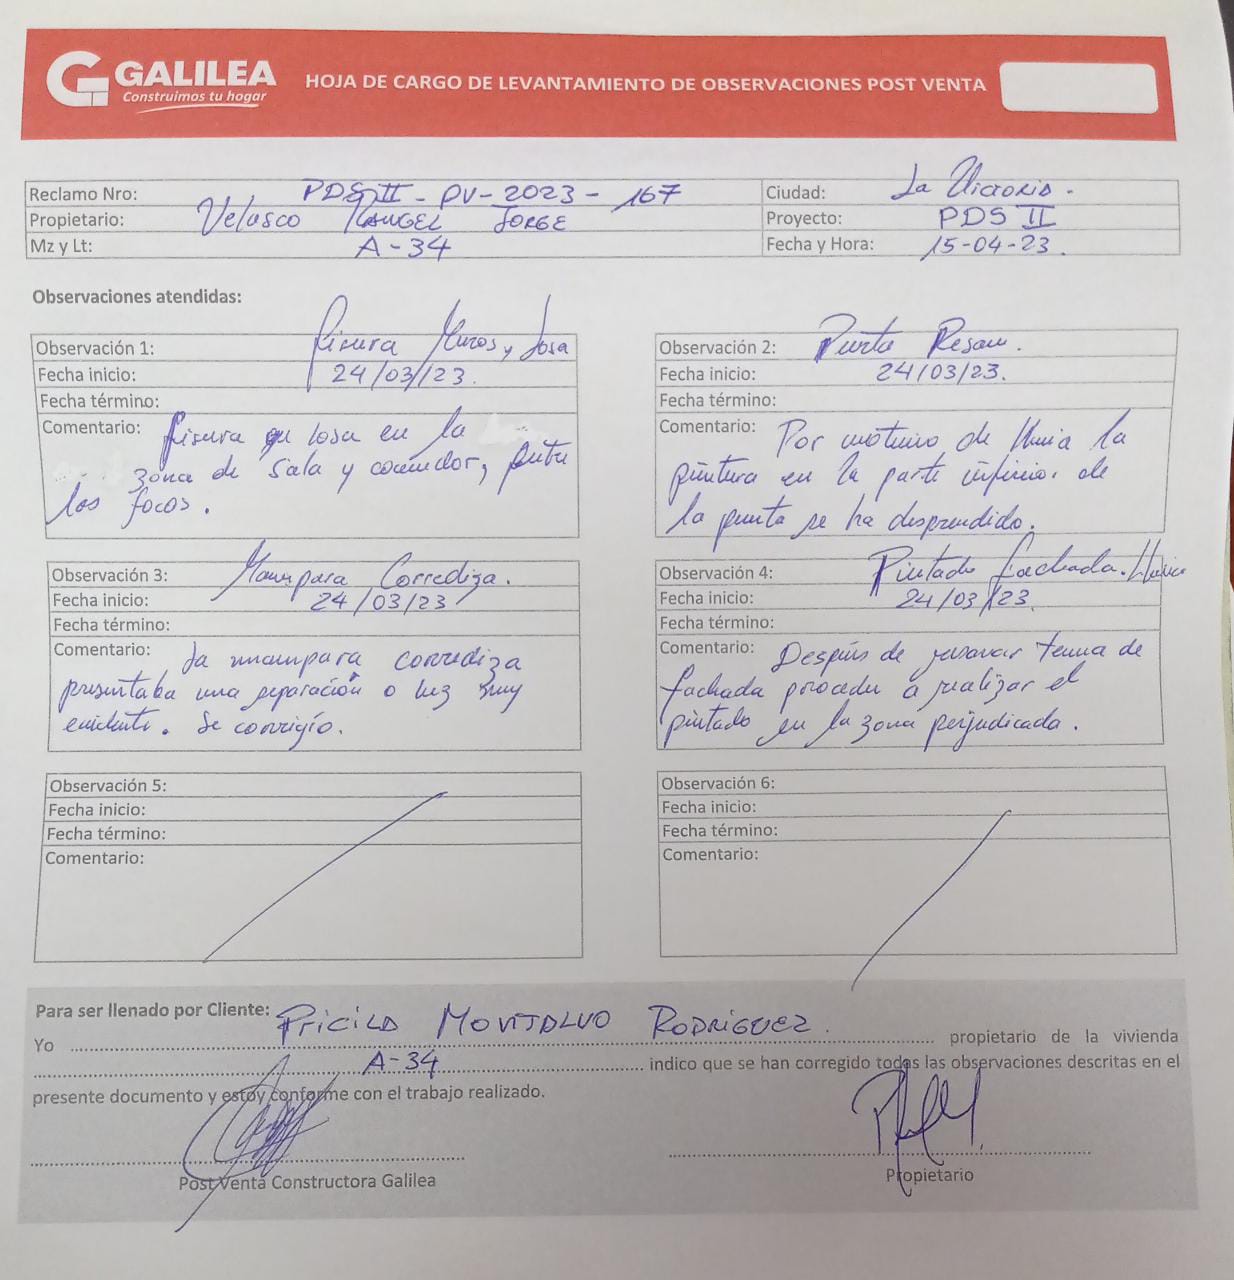 GALILEA
Construimos tu hogar
HOJA DE CARGO DE LEVANTAMIENTO DE OBSERVACIONES POST VENTA
Reclamo Nro: PDS II - PV - 2023 - 167
Ciudad: La Victoria.
Propietario: Velasco Rangel Jorge
Proyecto: PDS II
Mz y Lt: A-34
Fecha y Hora: 15-04-23.
Observaciones atendidas:
Observación 1: fisura Muros y Losa
Fecha inicio: 24/03/23.
Fecha término:
Comentario: fisura en losa en la
zona de sala y comedor, entre
los focos.
Observación 2: Puerta
Fecha inicio: 24/03/23.
Fecha término:
Comentario: Por motivo de lluvia la
pintura en la parte inferior de
la puerta se ha desprendido.
Observación 3: Mampara Corrediza.
Fecha inicio: 24/03/23
Fecha término:
Comentario: La mampara corrediza
presentaba una separación o luz muy
evidente. Se corrigío.
Observación 4: Pintado fachada.
Fecha inicio: 24/03/23.
Fecha término:
Comentario: Después de tema de
fachada procedu a realizar el
pintado en la zona perjudicada.
Observación 5:
Fecha inicio:
Fecha término:
Comentario:
Observación 6:
Fecha inicio:
Fecha término:
Comentario:
Para ser llenado por Cliente:
Yo Pricila Montalvo Rodriguez. propietario de la vivienda
A-34 indico que se han corregido todas las observaciones descritas en el
presente documento y estoy conforme con el trabajo realizado.
Post Venta Constructora Galilea
Propietario